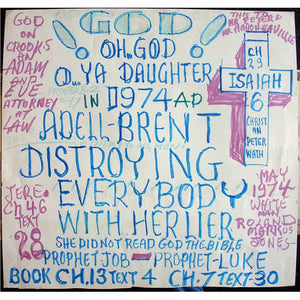 ! GOD !
OH, GOD
O... YA DAUGHTER
IN 1974 AD
ADELL-BRENT
DISTROYING
EVERYBODY
WITH HER IIER
SHE DID NOT READ GOD THE BIBLE
PROPHET JOB — PROPHET-LUKE
BOOK CH.13 TEXT 4 CH.7 TEXT-30
GOD
ON
CROOKS
AN
ADAM
AND
EVE
ATTORNEY
AT
LAW
JERE.
CH 46
TEXT
28
CH
29
ISAIAH
6
CHRIST
AN
PETER
WITH
MAY
1974
WHITE
MAN
ROLAND
MARKUS
JONES